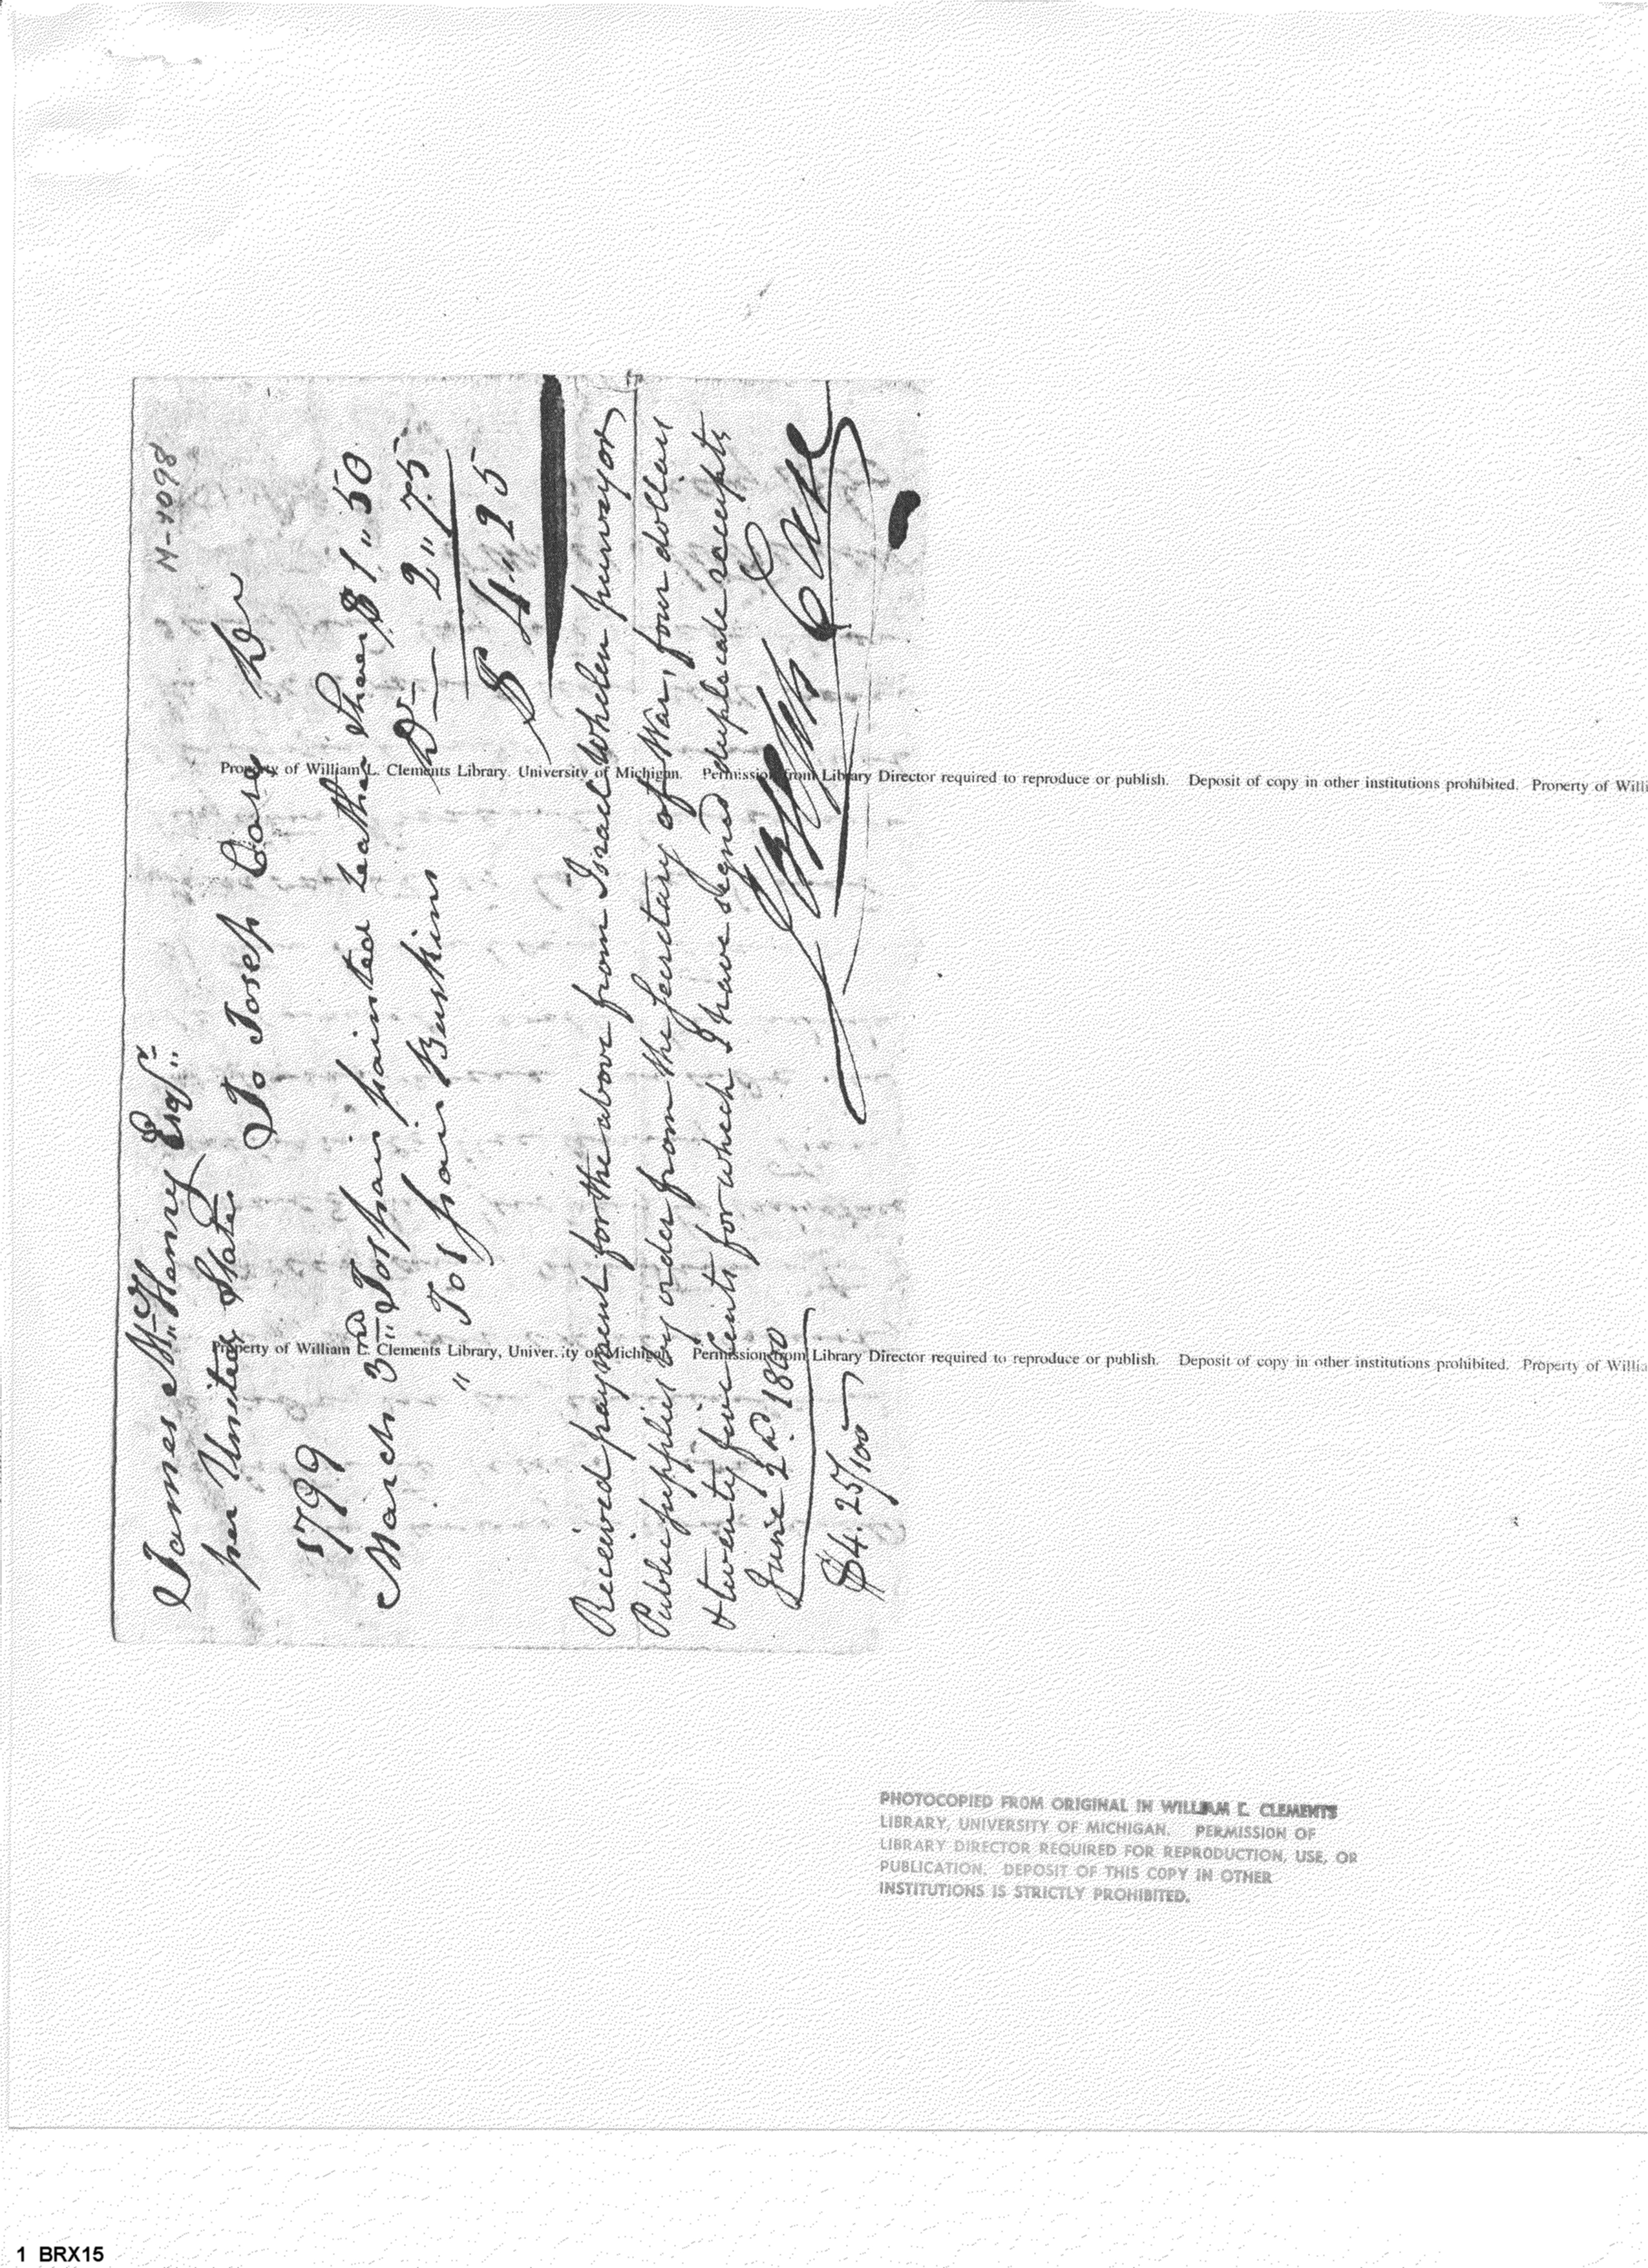 M-1098
James McHenry Esqr.
per United States
To Joseph Case Dr
1799
March 3rd To 1 pair painted Leather Shoes $1"50
" To 1 pair Buskins Do— 2"75
$ 4"25
Received payment for the above from Israel Whelen purveyor
Public supplies by order from the Secretary of War, four dollars
& twenty five Cents for which I have signed duplicate receipts
June 2d. 1800
$4.25/100
Joseph Case
Property of William L. Clements Library. University of Michigan. Permission from Library Director required to reproduce or publish. Deposit of copy in other institutions prohibited. Property of Willi
Property of William L. Clements Library, University of Michigan. Permission from Library Director required to reproduce or publish. Deposit of copy in other institutions prohibited. Property of Willia
PHOTOCOPIED FROM ORIGINAL IN WILLIAM L. CLEMENTS
LIBRARY, UNIVERSITY OF MICHIGAN. PERMISSION OF
LIBRARY DIRECTOR REQUIRED FOR REPRODUCTION, USE, OR
PUBLICATION. DEPOSIT OF THIS COPY IN OTHER
INSTITUTIONS IS STRICTLY PROHIBITED.
1 BRX15